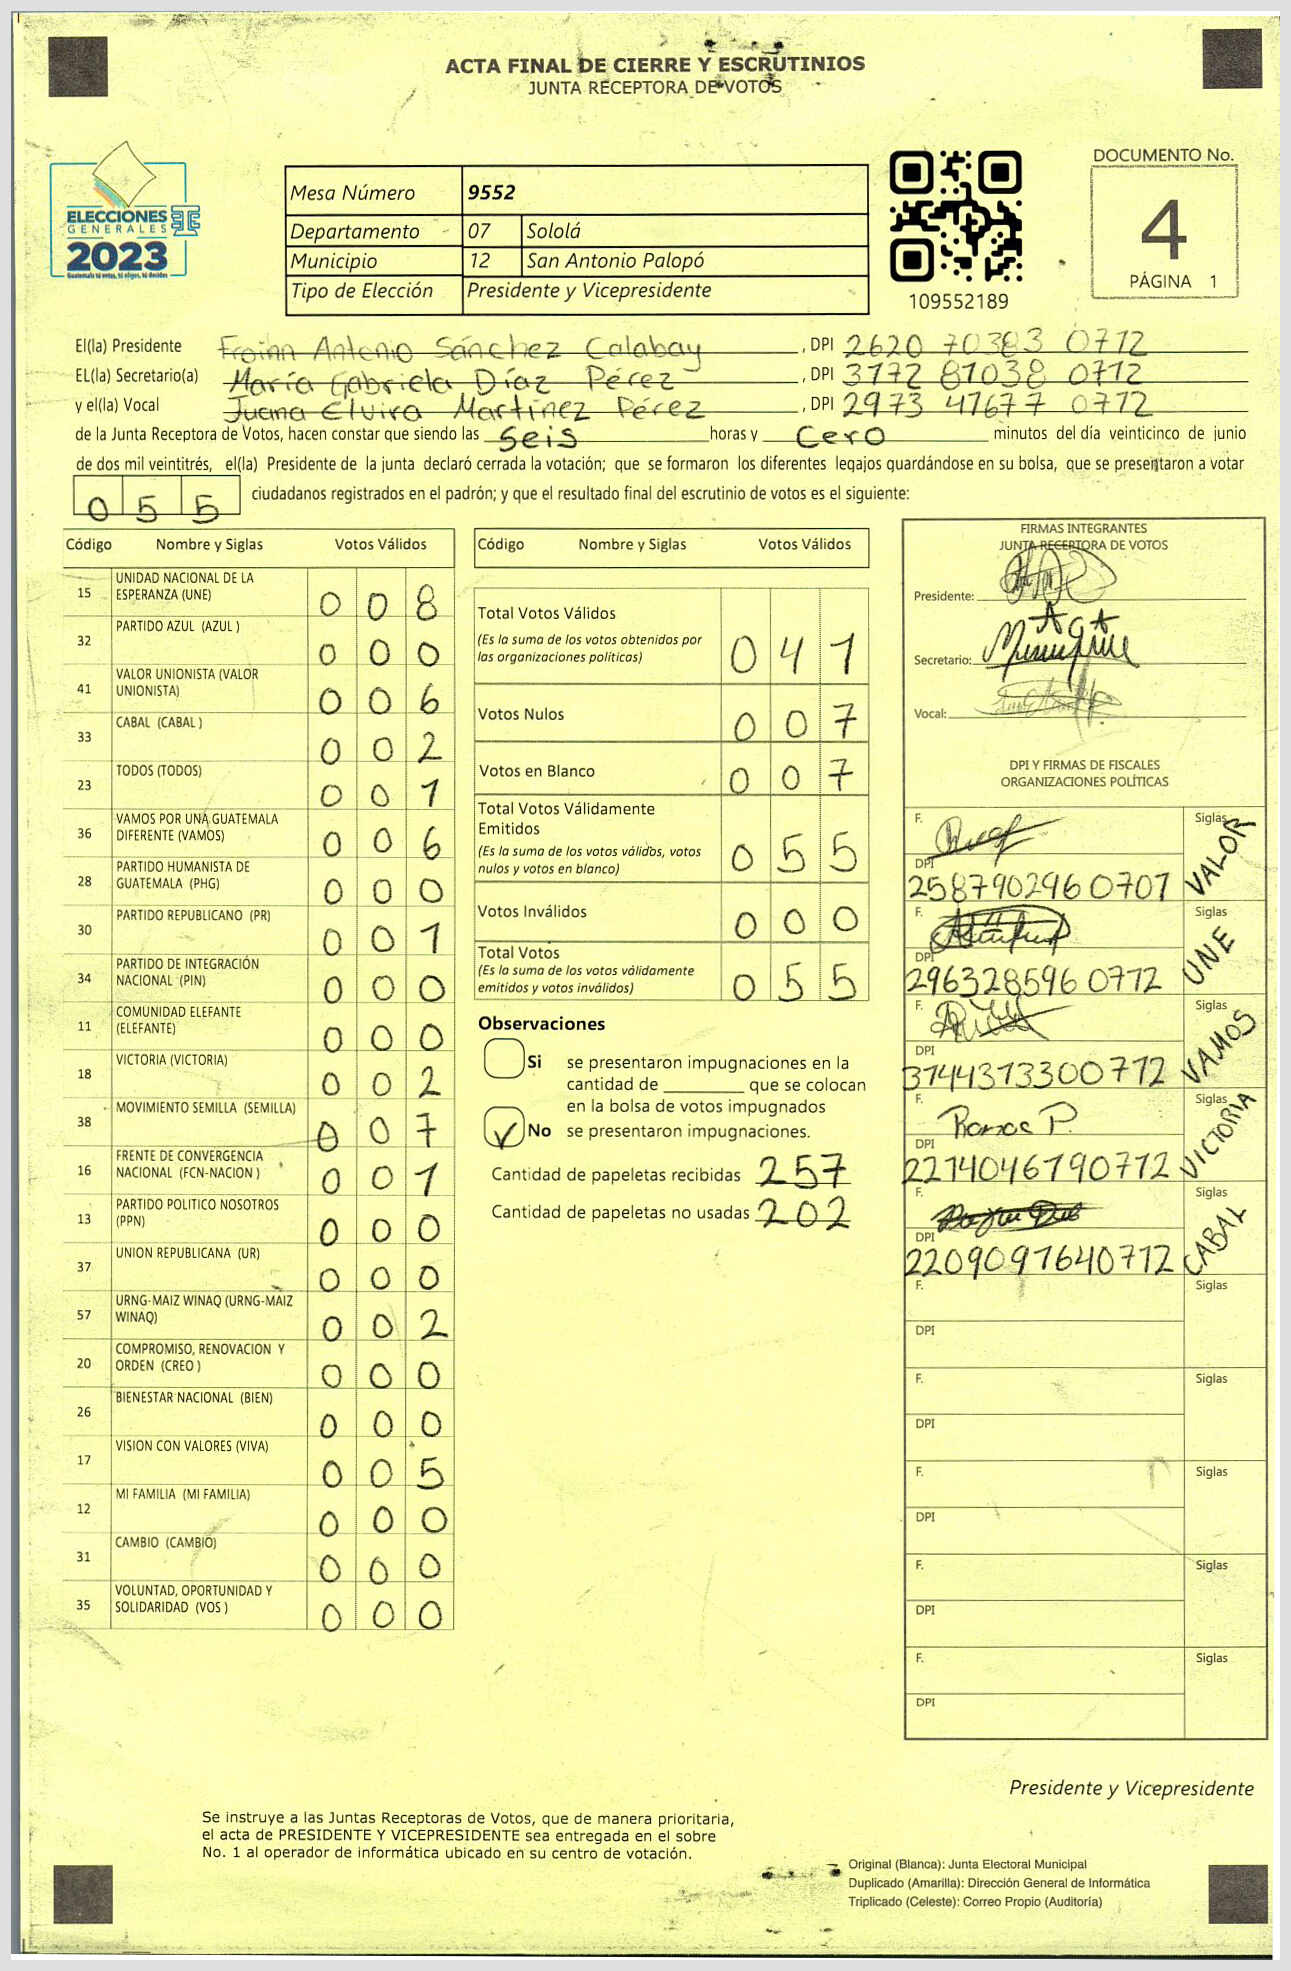 ACTA FINAL DE CIERRE Y ESCRUTINIOS
JUNTA RECEPTORA DE VOTOS
ELECCIONES
GENERALES
2023
Guatemala tú votas, tú eliges, tú decides
Mesa Número 9552
Departamento 07 Sololá
Municipio 12 San Antonio Palopó
Tipo de Elección Presidente y Vicepresidente
109552189
DOCUMENTO No.
4
PÁGINA 1
El(la) Presidente Froinn Antonio Sánchez Calabay, DPI 2620 70383 0712
EL(la) Secretario(a) María Gabriela Díaz Pérez, DPI 3172 81038 0712
y el(la) Vocal Juana Elvira Martínez Pérez, DPI 2973 41677 0712
de la Junta Receptora de Votos, hacen constar que siendo las Seis horas y Cero minutos del día veinticinco de junio
de dos mil veintitrés, el(la) Presidente de la junta declaró cerrada la votación; que se formaron los diferentes legajos guardándose en su bolsa, que se presentaron a votar
055 ciudadanos registrados en el padrón; y que el resultado final del escrutinio de votos es el siguiente:
Código Nombre y Siglas Votos Válidos
15 UNIDAD NACIONAL DE LA
ESPERANZA (UNE) 008
32 PARTIDO AZUL (AZUL ) 000
41 VALOR UNIONISTA (VALOR
UNIONISTA) 006
33 CABAL (CABAL ) 002
23 TODOS (TODOS) 001
36 VAMOS POR UNA GUATEMALA
DIFERENTE (VAMOS) 006
28 PARTIDO HUMANISTA DE
GUATEMALA (PHG) 000
30 PARTIDO REPUBLICANO (PR) 001
34 PARTIDO DE INTEGRACIÓN
NACIONAL (PIN) 000
11 COMUNIDAD ELEFANTE
(ELEFANTE) 000
18 VICTORIA (VICTORIA) 002
38 MOVIMIENTO SEMILLA (SEMILLA) 007
16 FRENTE DE CONVERGENCIA
NACIONAL (FCN-NACION ) 001
13 PARTIDO POLITICO NOSOTROS
(PPN) 000
37 UNION REPUBLICANA (UR) 000
57 URNG-MAIZ WINAQ (URNG-MAIZ
WINAQ) 002
20 COMPROMISO, RENOVACION Y
ORDEN (CREO ) 000
26 BIENESTAR NACIONAL (BIEN) 000
17 VISION CON VALORES (VIVA) 005
12 MI FAMILIA (MI FAMILIA) 000
31 CAMBIO (CAMBIO) 000
35 VOLUNTAD, OPORTUNIDAD Y
SOLIDARIDAD (VOS ) 000
Código Nombre y Siglas Votos Válidos
Total Votos Válidos
(Es la suma de los votos obtenidos por
las organizaciones políticas) 041
Votos Nulos 007
Votos en Blanco 007
Total Votos Válidamente
Emitidos
(Es la suma de los votos válidos, votos
nulos y votos en blanco) 055
Votos Inválidos 000
Total Votos
(Es la suma de los votos válidamente
emitidos y votos inválidos) 055
Observaciones
Si se presentaron impugnaciones en la
cantidad de ________ que se colocan
en la bolsa de votos impugnados
No se presentaron impugnaciones.
Cantidad de papeletas recibidas 257
Cantidad de papeletas no usadas 202
FIRMAS INTEGRANTES
JUNTA RECEPTORA DE VOTOS
Presidente:
Secretario:
Vocal:
DPI Y FIRMAS DE FISCALES
ORGANIZACIONES POLÍTICAS
F. Siglas VALOR
DPI
2587902960701
F. Siglas UNE
DPI
2963285960712
F. Siglas VAMOS
DPI
3144313300712
F. Ramos P. Siglas VICTORIA
DPI
2214046190712
F. Siglas CABAL
DPI
2209091640712
F. Siglas
DPI
F. Siglas
DPI
F. Siglas
DPI
F. Siglas
DPI
F. Siglas
DPI
Presidente y Vicepresidente
Se instruye a las Juntas Receptoras de Votos, que de manera prioritaria,
el acta de PRESIDENTE Y VICEPRESIDENTE sea entregada en el sobre
No. 1 al operador de informática ubicado en su centro de votación.
Original (Blanca): Junta Electoral Municipal
Duplicado (Amarilla): Dirección General de Informática
Triplicado (Celeste): Correo Propio (Auditoría)